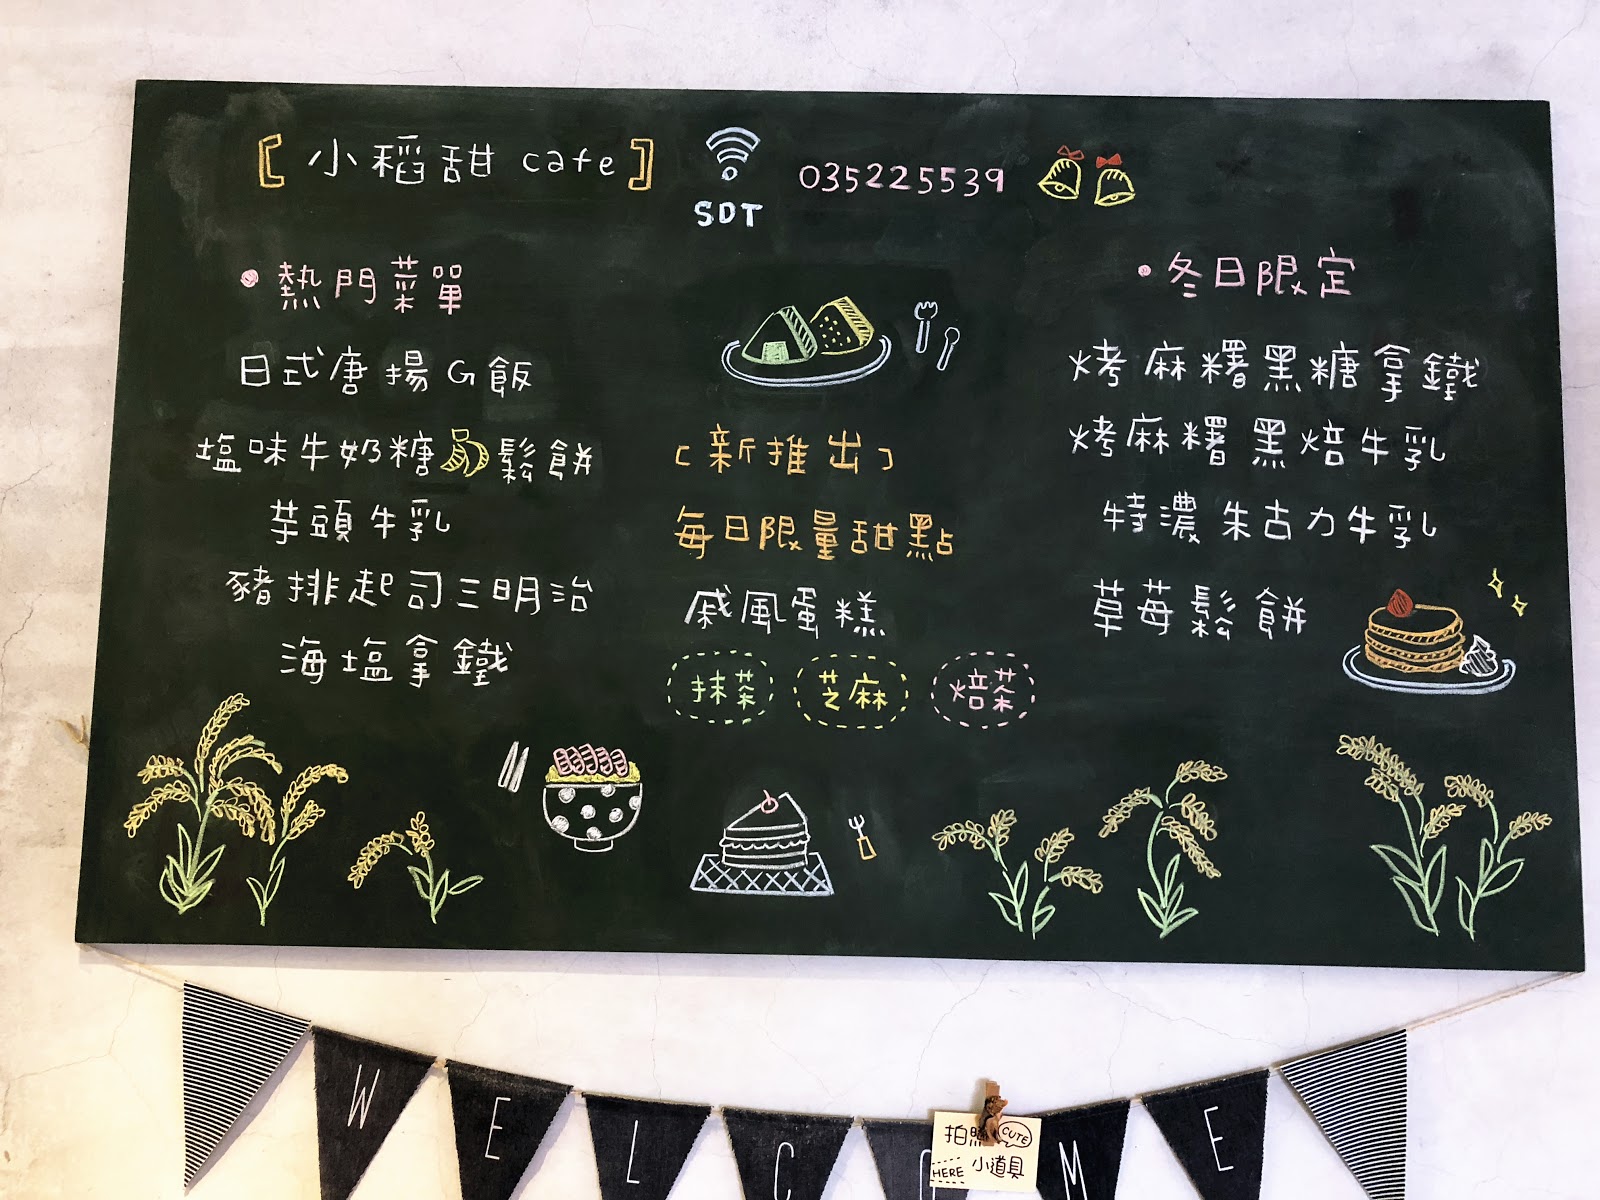 [ 小稻甜 cafe ]
SDT
035225539
• 熱門菜單
日式唐揚G飯
塩味牛奶糖鬆餅
芋頭牛乳
豬排起司三明治
海塩拿鐵
[新推出]
每日限量甜點
戚風蛋糕
抹茶 芝麻 焙茶
• 冬日限定
烤麻糬黑糖拿鐵
烤麻糬黑焙牛乳
特濃朱古力牛乳
草莓鬆餅
WELCOME
拍照 CUTE
HERE 小道具